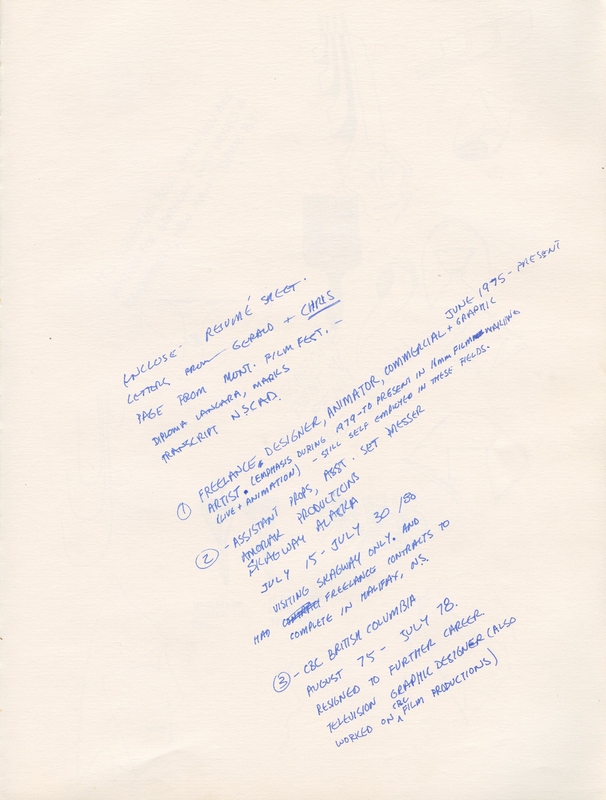 ENCLOSE - RESUMÉ SHEET.
LETTERS FROM GERALD + CHRIS
PAGE FROM MONT. FILM FEST. -
DIPLOMA LANGARA, MARKS
TRANSCRIPT NSCAD.
JUNE 1975 - PRESENT
① FREELANCE DESIGNER, ANIMATOR, COMMERCIAL + GRAPHIC
ARTIST. (EMPHASIS DURING 1979 - TO PRESENT IN 16mm FILM MAKING
(LIVE + ANIMATION) - STILL SELF EMPLOYED IN THESE FIELDS.
② - ASSISTANT PROPS, ASST. SET DRESSER
AMORAK PRODUCTIONS
SKAGWAY ALASKA
JULY 15 - JULY 30 /80
VISITING SKAGWAY ONLY. AND
HAD FREELANCE CONTRACTS TO
COMPLETE IN HALIFAX, N.S.
③ - CBC BRITISH COLUMBIA
AUGUST 75 - JULY 78.
RESIGNED TO FURTHER CAREER
TELEVISION GRAPHIC DESIGNER (ALSO
WORKED ON CBC FILM PRODUCTIONS)